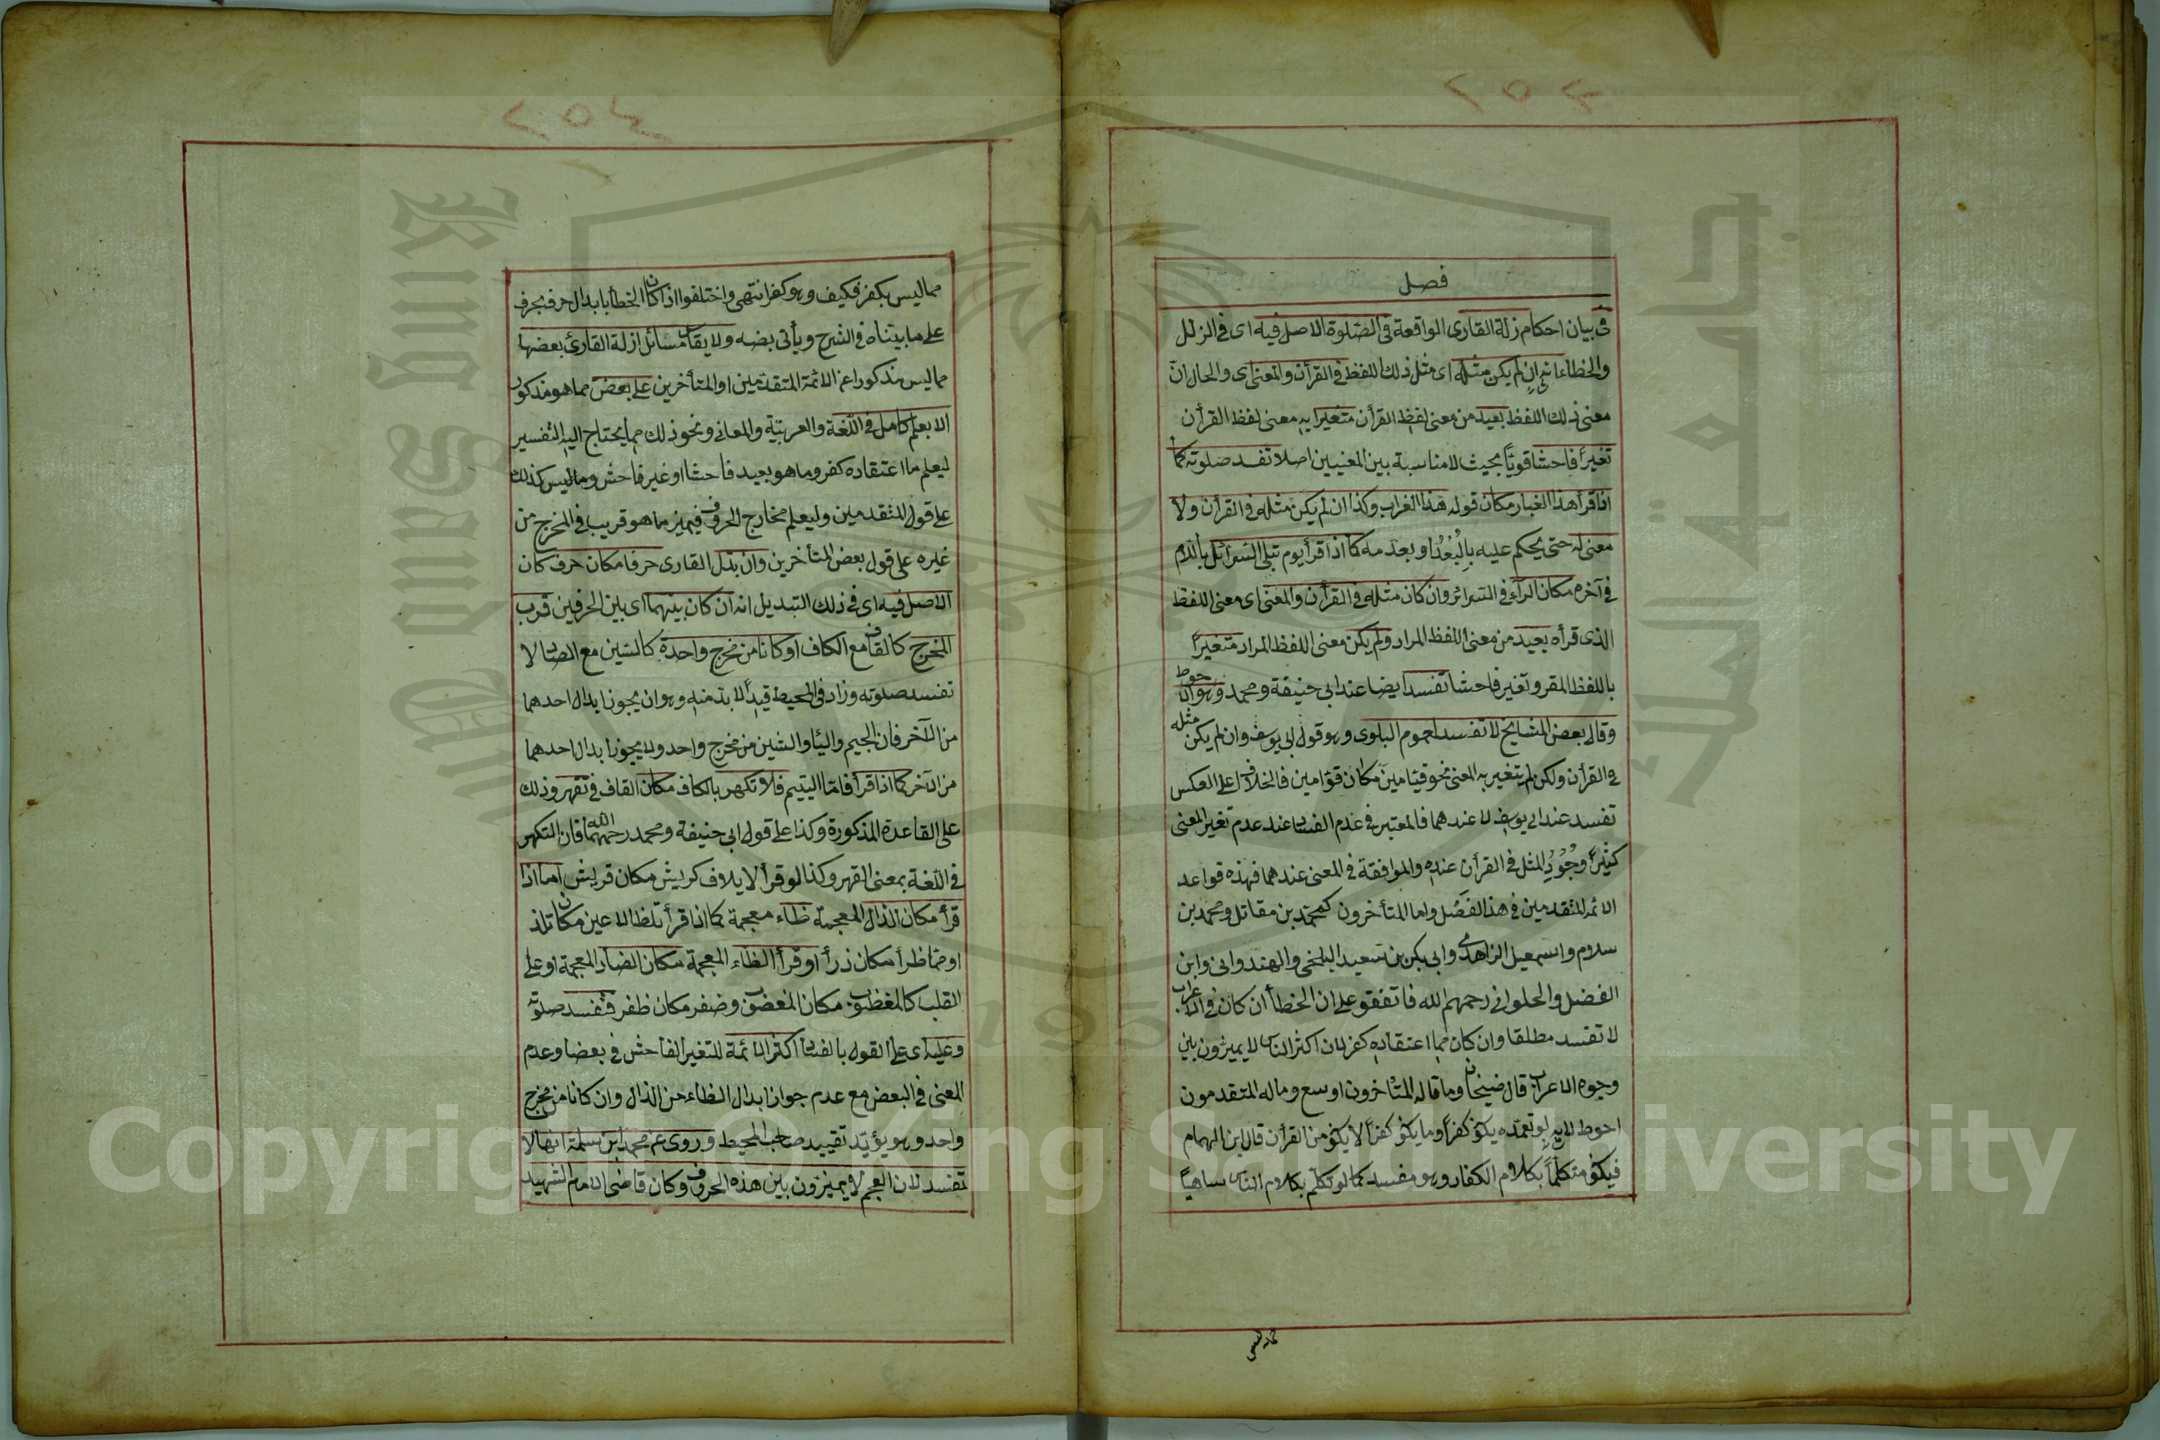 ٢٥٣
فصل
فى بيان احكام زلة القارى الواقعة فى الصلوة الاصل فيه اى فى الزلل
والخطاء انه ان لم يكن مثله اى مثل ذلك اللفظ فى القرأن والمعنى اى والحال ان
معنى ذلك اللفظ بعيد من معنى لفظ القرأن متغيرا به معنى لفظ القرأن
تغيرا فاحشا قويا بحيث لا مناسبة بين المعنيين اصلا تفسد صلوته كما
اذا قرأ هذا الغبار مكان قوله هذا الغراب وكذا ان لم يكن مثله فى القرأن ولا
معنى له حتى يحكم عليه بالبعد او بعدمه كما اذا قرأ يوم تبلى السرائل باللام
فى آخره مكان الرآء فى السرائر وان كان مثله فى القرأن والمعنى اى معنى اللفظ
الذى قرأه بعيد من معنى اللفظ المراد ولم يكن معنى اللفظ المراد متغيرا
باللفظ المقرو تغير فاحشا تفسد ايضا عند ابى حنيفة ومحمد وهو الاحوط
وقال بعض المشايخ لا تفسد لعموم البلوى وهو قول ابى يوسف وان لم يكن مثله
فى القرأن ولكن لم يتغير به المعنى نحو قيامين مكان قوامين فالخلاف على العكس
تفسد عند ابى يوسف لا عندهما فالمعتبر فى عدم الفساد عند عدم تغير المعنى
كثيرا وجود المثل فى القرأن عنده والموافقة فى المعنى عندهما فهذه قواعد
الائمة المتقدمين فى هذا الفصل واما المتأخرون كمحمد بن مقاتل ومحمد بن
سلام واسمعيل الزاهدى وابى بكر بن سعيد البلخى والهندوانى وابن
الفضل والحلوانى رحمهم الله فاتفقو على ان الخطأ ان كان فى الاعراب
لا تفسد مطلقا وان كان مما اعتقاده كفر لان اكثر الناس لا يميزون بين
وجوه الاعراب قال ضيخان وما قاله المتأخرون اوسع وماله المتقدمون
احوط لانه لو تعمده يكون كفرا وما يكون كفرا لا يكون من القرأن قال ابن الهمام
فيكون متكلما بكلام الكفار وهو مفسد كما لو تكلم بكلام الناس ساهيا
مما ليس
٢٥٤
مما ليس بكفر فكيف وهو كفر انتهى واختلفوا اذا كان الخطأ بابدال حرف بحرف
على ما بيناه فى الشرح ويأتى بضه ولا يقاس مسائل زلة القارئ بعضها
مما ليس مذكورا عن الائمة المتقدمين او المتأخرين على بعض مما هو مذكور
الا بعلم كامل فى اللغة والعربية والمعانى ونحو ذلك مما يحتاج اليه التفسير
ليعلم ما اعتقاده كفر وما هو بعيد فاحشا او غير فاحش وما ليس كذلك
على قول المتقدمين وليعلم مخارج الحروف فيميز ما هو قريب فى المخرج من
غيره على قول بعض المتأخرين وان بدل القارى حرفا مكان حرف كان
الاصل فيه اى فى ذلك التبديل انه ان كان بينهما اى بين الحرفين قرب
المخرج كالقاف مع الكاف او كانا من مخرج واحدة كالسين مع الصاد لا
تفسد صلوته وزاد فى المحيط قيدا لا بد منه وهو ان يجوز ابدال احدهما
من الآخر فان الجيم والياء والشين من مخرج واحد ولا يجوز ابدال احدهما
من الآخر كما اذا قرأ فاما اليتيم فلا تكهر بالكاف مكان القاف فى تقهر وذلك
على القاعدة المذكورة وكذا على قول ابى حنيفة ومحمد رحمهما الله فان التكهر
فى اللغة بمعنى القهر وكذا لو قرأ لايلاف كريش مكان قريش اما اذا
قرأ مكان الذال المعجمة ظاء معجمة كما اذا قرأ تلظ الاعين مكان تلذ
او مما ظرأ مكان ذرأ او قرأ الظاء المعجمة مكان الضاد المعجمة او على
القلب كالمغظوب مكان المغضوب وضفر مكان ظفر فتفسد صلوته
وعليه اى على القول بالفساد اكثر الائمة للتغير الفاحش فى بعضا وعدم
المعنى فى البعض مع عدم جواز ابدال الظاء من الذال وان كانا من مخرج
واحد وهو يؤيد تقييد صاحب المحيط وروى عن محمد ابن سلمة انها لا
تفسد لان العجم لا يميزون بين هذه الحروف وكان قاضى الامام الشهيد